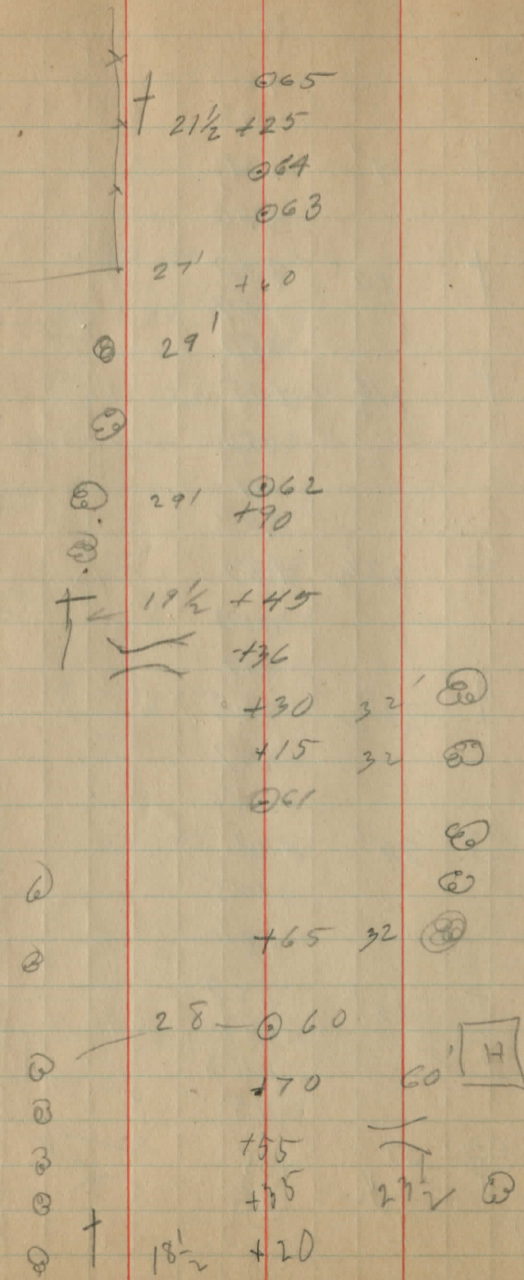 ⊙65
21½ +25
⊙64
⊙63
27'
29'
29' ⊙62
+90
19½ +45
+36
+30 32'
+15 32
⊙61
+65 32
28 ⊙ 60
H
+70 60'
+55
+35 23½
18½ +20